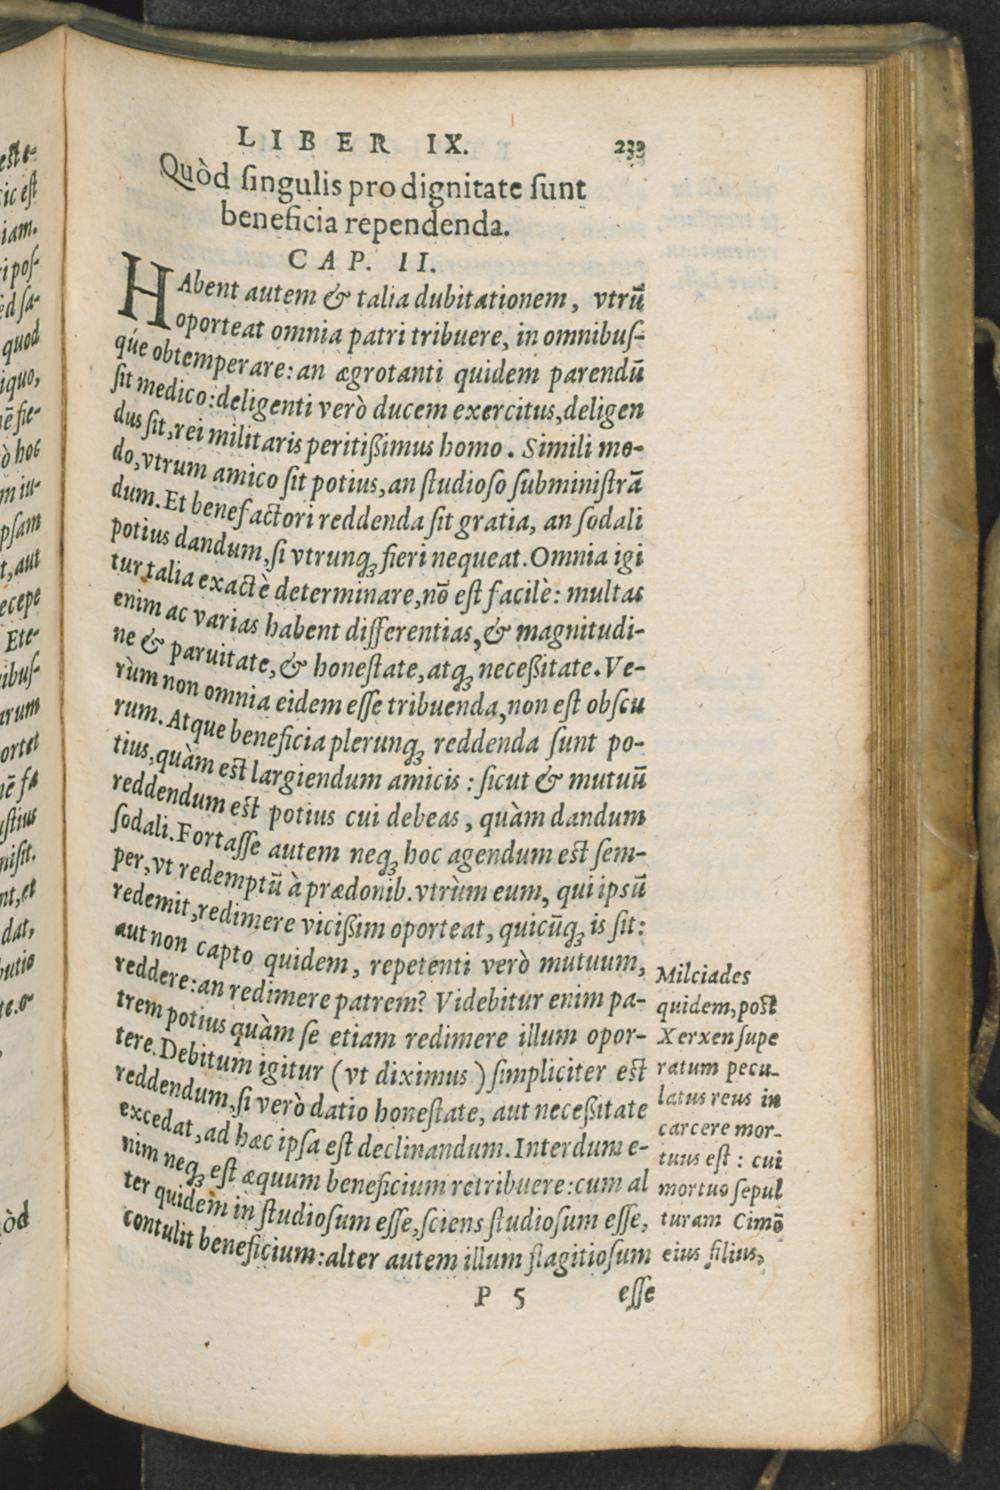 LIBER IX. 233
Quòd singulis pro dignitate sunt
beneficia rependenda.
CAP. II.
HAbent autem & talia dubitationem, vtrũ
oporteat omnia patri tribuere, in omnibus-
qúe obtemperare: an ægrotanti quidem parendũ
sit medico: deligenti verò ducem exercitus, deligen
dus sit, rei militaris peritißimus homo. Simili mo-
do, vtrum amico sit potius, an studioso subministrã
dum. Et benefactori reddenda sit gratia, an sodali
potius dandum, si vtrunq; fieri nequeat. Omnia igi
tur talia exactè determinare, nõ est facilè: multas
enim ac varias habent differentias, & magnitudi-
ne & paruitate, & honestate, atq; neceßitate. Ve-
rùm non omnia eidem esse tribuenda, non est obscu
rum. Atque beneficia plerunq; reddenda sunt po-
tius, quàm est largiendum amicis: sicut & mutuũ
reddendum est potius cui debeas, quàm dandum
sodali. Fortasse autem neq; hoc agendum est sem-
per, vt redemptũ à prædonib. vtrùm eum, qui ipsũ
redemit, redimere vicißim oporteat, quicũq; is sit:
aut non capto quidem, repetenti verò mutuum,
reddere: an redimere patrem? Videbitur enim pa-
trem potius quàm se etiam redimere illum opor-
tere. Debitum igitur (vt diximus) simpliciter est
reddendum, si verò datio honestate, aut neceßitate
excedat, ad hæc ipsa est declinandum. Interdum e-
nim neq; est æquum beneficium retribuere: cum al
ter quidem in studiosum esse, sciens studiosum esse,
contulit beneficium: alter autem illum flagitiosum
P 5 esse
Milciades
quidem, post
Xerxen supe
ratum pecu-
latus reus in
carcere mor-
tuus est: cui
mortuo sepul
turam Cimõ
eius filius,